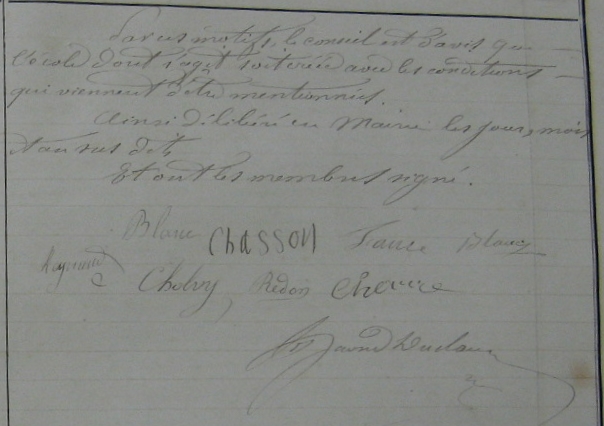 Par ces motifs, le conseil est d'avis que
l'école dont s'agit soit créée avec les conditions
qui viennent d'être mentionnées.
Ainsi délibéré en Mairie les jour, mois
et an sus dits
Et ont les membres signé.
Blanc Chasson Faure Blanc
Raynaud
Cholvy, Redon